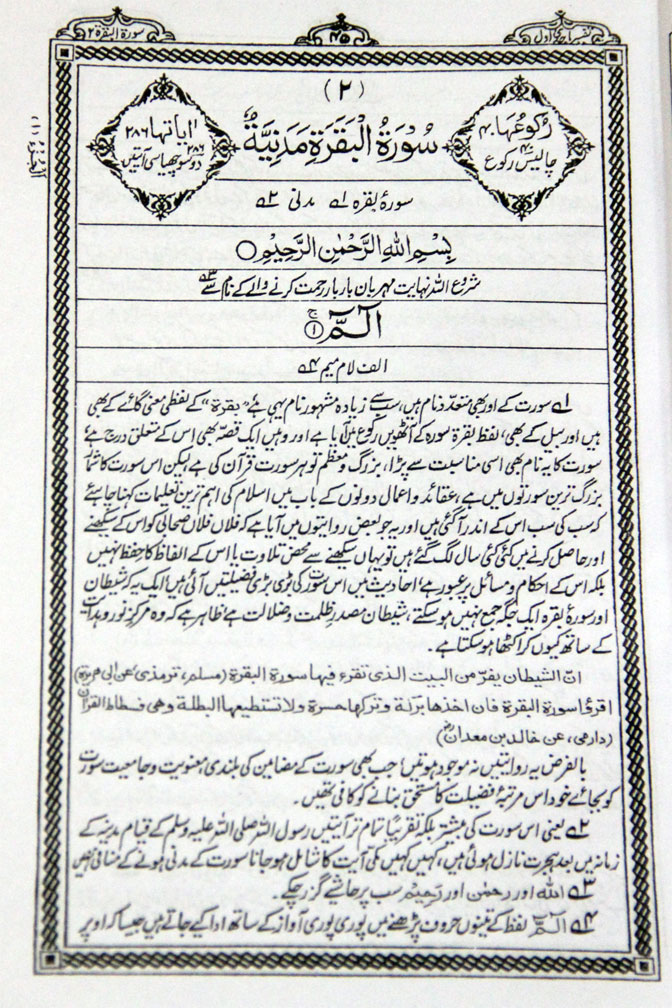 تفسیر ماجدی اول
۴۵
سورۃ البقرۃ ۲
الجزء (۱)
(۲)
رکوعها ۴۰
۴۰
چالیس رکوع
سُوۡرَةُ الۡبَقَرَةِ مَدَنِيَّةٌ
اٰیاتها ۲۸۶
۲۸۶
دو سو چھیاسی آیتیں
سورۂ بقرہ ۱؎ مدنی ۲؎
بِسۡمِ اللّٰهِ الرَّحۡمٰنِ الرَّحِيۡمِ
شروع اللہ نہایت مہربان بار بار رحمت کرنے والے کے نام سے ۳؎
الٓمّٓ ۚ ۱
الف لام میم ۴؎
۱؎ سورت کے اور بھی متعدد نام ہیں، سب سے زیادہ مشہور نام یہی ہے "بقرۃ" کے لفظی معنی گائے کے بھی
ہیں اور بیل کے بھی، لفظ بقرۃ سورہ کے آٹھویں رکوع میں آیا ہے اور وہیں ایک قصہ بھی اس کے متعلق درج ہے
سورت کا یہ نام بھی اسی مناسبت سے پڑا، بزرگ و معظم تو ہر سورت قرآن کی ہے لیکن اس سورت کا شمار
بزرگ ترین سورتوں میں ہے، عقائد و اعمال دونوں کے باب میں اسلام کی اہم ترین تعلیمات کہنا چاہئے
کہ سب کی سب اس کے اندر آ گئی ہیں اور یہ جو بعض روایتوں میں آیا ہے کہ فلاں فلاں صحابی کو اس کے سیکھنے
اور حاصل کرنے میں کئی کئی سال لگ گئے ہیں تو یہاں سیکھنے سے محض تلاوت یا اس کے الفاظ کا حفظ نہیں
بلکہ اس کے احکام و مسائل پر عبور ہے، احادیث میں اس سورت کی بڑی بڑی فضیلتیں آئی ہیں، ایک یہ کہ شیطان
اور سورۂ بقرہ ایک جگہ جمع نہیں ہو سکتے، شیطان مصدرِ ظلمت و ضلالت ہے، ظاہر ہے کہ وہ مرکزِ نور و ہدایت
کے ساتھ کیوں کر اکٹھا ہو سکتا ہے۔
انّ الشیطان یفرّ من البیت الذی تقرء فیها سورۃ البقرۃ (مسلم، ترمذی عن ابی هریرۃ)
اقرءُا سورۃ البقرۃ فان اخذها برکۃ وترکها حسرۃ ولا تستطیعها البطلۃ وهی فسطاط القرآن
(دارمی، عن خالد بن معدانؓ)
بالفرض یہ روایتیں نہ موجود ہوتیں، جب بھی سورت کے مضامین کی بلندی، معنویت و جامعیت سورت
کو بجائے خود اس مرتبۂ فضیلت کا مستحق بنانے کو کافی تھیں۔
۲؎ یعنی اس سورت کی بیشتر بلکہ تقریباً تمام تر آیتیں رسول اللہ صلی اللہ علیہ وسلم کے قیام مدینہ کے
زمانہ میں بعد ہجرت نازل ہوئی ہیں، کہیں کہیں مکی آیت کا شامل ہو جانا سورت کے مدنی ہونے کے منافی نہیں
۳؎ اللہ اور رحمٰن اور رحیم سب پر حاشیے گزر چکے۔
۴؎ الٓمّٓ لفظ کے تینوں حروف پڑھنے میں پوری پوری آواز کے ساتھ ادا کیے جاتے ہیں جیسا کہ اوپر